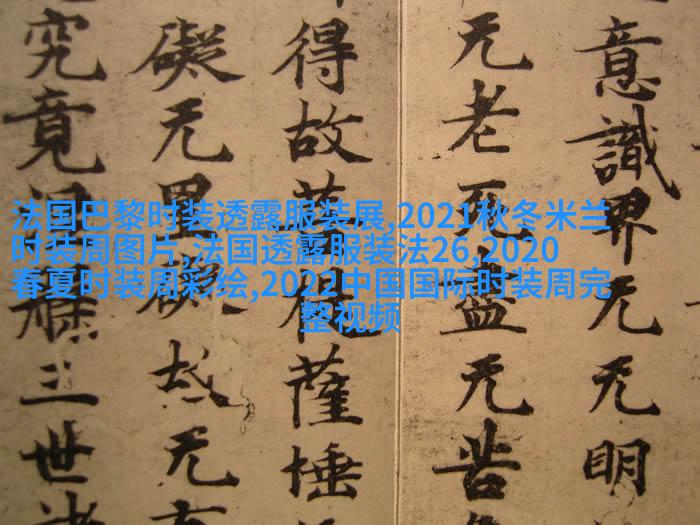 法国巴黎时装透露服装展,2021秋冬米兰
时装周图片,法国透露服装法26,2020
春夏时装周彩绘,2022中国国际时装周完
整视频
意識界无无明
无老死盡无苦
得故菩提薩埵
礙无罣礙故无
究竟涅槃三世諸